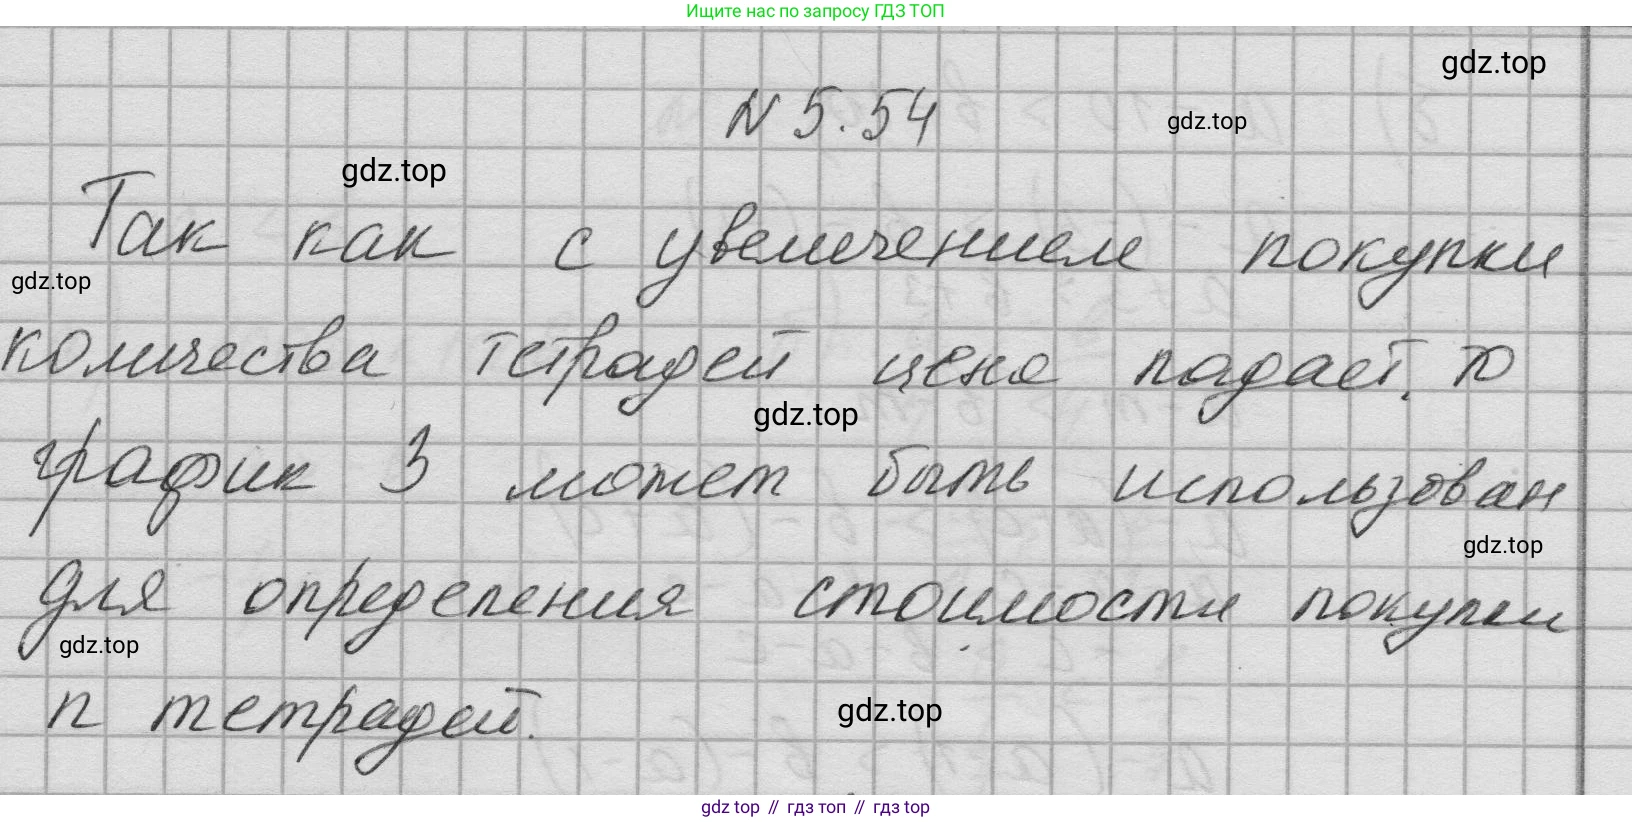 Ищите нас по запросу ГДЗ ТОП
gdz.top
N 5.54
gdz.top
gdz.top
Так как с увеличением покупки
gdz.top
количества тетрадей цена падает, то
gdz.top
график 3 может быть использован
gdz.top
для определения стоимости покупки
gdz.top
n тетрадей.
gdz.top
gdz top // гдз топ // гдз top